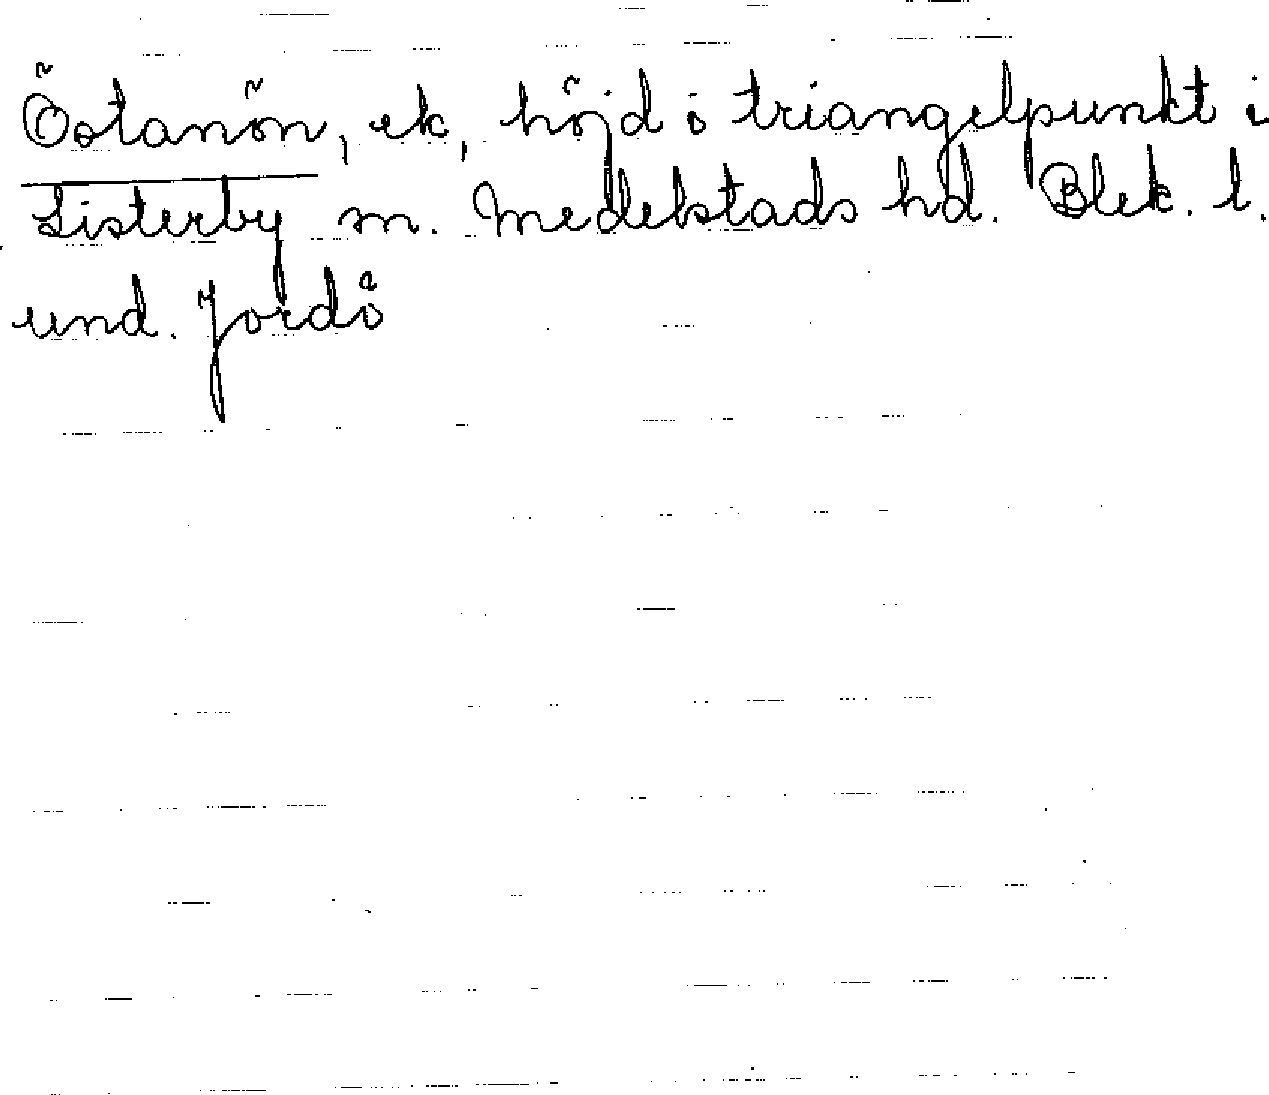 Östanön, ek, höjd o triangelpunkt i
Listerby sn. Medelstads hd. Blek. l.
und. Jordö